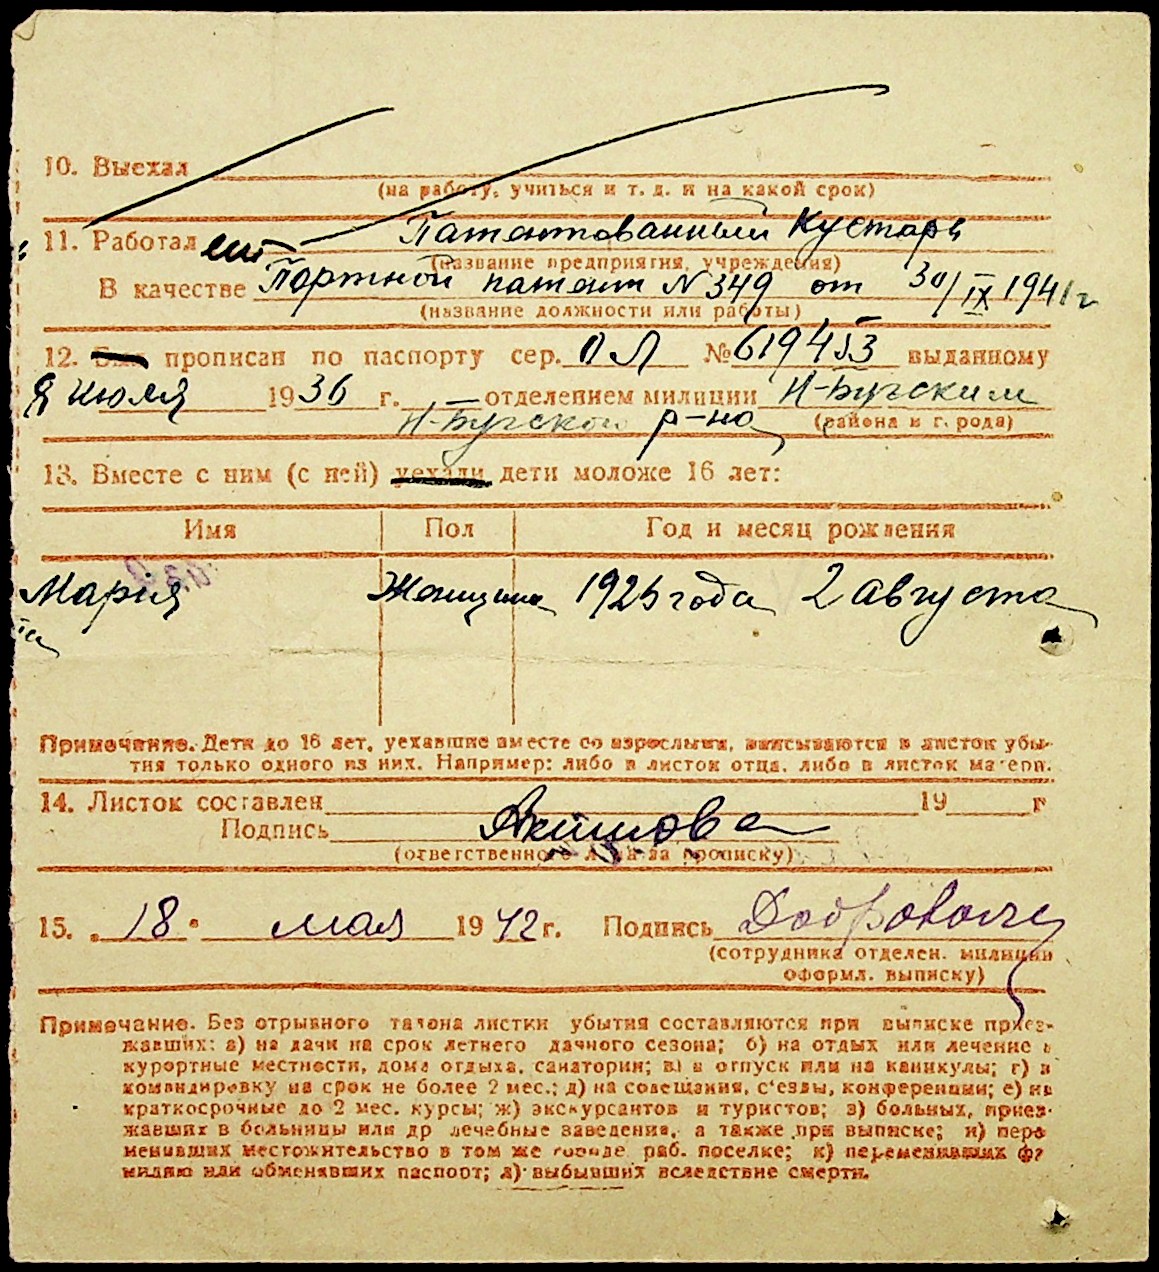 10. Выехал
(на работу, учиться и т. д. и на какой срок)
11. Работал ет Патентованный Кустарь
(название предприятия, учреждения)
В качестве Портной патент N 349 от 30/IX 1941 г
(название должности или работы)
12. Был прописан по паспорту сер. ОЛ №619453 выданному
Я июля 1936 г. отделением милиции Н-Бугским
Н-Бугского р-на (района и города)
13. Вместе с ним (с ней) уехали дети моложе 16 лет:
Имя Пол Год и месяц рождения
Мария Женщина 1925 года 2 августа
Примечание. Дети до 16 лет, уехавшие вместе со взрослыми, вписываются в листок убы-
тия только одного из них. Например: либо в листок отца, либо в листок матери.
14. Листок составлен 19 г
Подпись
(ответственного лица за прописку)
15. „ 18 " мая 1942 г. Подпись
(сотрудника отделен. милиции
оформл. выписку)
Примечание. Без отрывного талона листки убытия составляются при выписке приез-
жавших: а) на дачи на срок летнего дачного сезона; б) на отдых или лечение в
курортные местности, дома отдыха, санатории; в) в отпуск или на каникулы; г) в
командировку на срок не более 2 мес.; д) на совещания, с'езды, конференции; е) на
краткосрочные до 2 мес. курсы; ж) экскурсантов и туристов; з) больных, приез-
жавших в больницы или др лечебные заведения, а также при выписке; и) пере
менивших местожительство в том же городе, раб. поселке; к) переменивших фа
милию или обменявших паспорт; л) выбывших вследствие смерти.